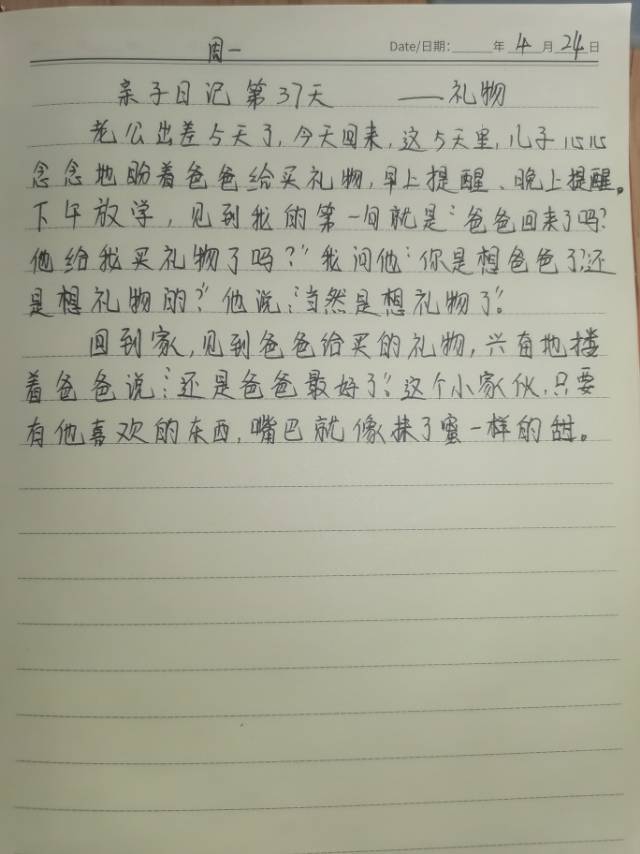 周一 Date/日期: 年 4 月 24 日
亲子日记 第37天 ——礼物
老公出差5天了,今天回来,这5天里,儿子心心
念念地盼着爸爸给买礼物,早上提醒、晚上提醒。
下午放学,见到我的第一句就是:“爸爸回来了吗?
他给我买礼物了吗?”我问他:“你是想爸爸了?还
是想礼物的?”他说:“当然是想礼物了”。
回到家,见到爸爸给买的礼物,兴奋地搂
着爸爸说:“还是爸爸最好了”。这个小家伙,只要
有他喜欢的东西,嘴巴就像抹了蜜一样的甜。